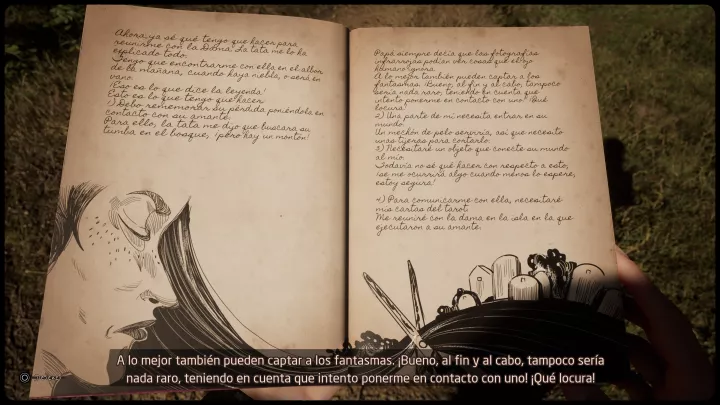 Ahora ya sé qué tengo que hacer para
reunirme con la Dama. La tata me lo ha
explicado todo.
Tengo que encontrarme con ella en el albor
de la mañana, cuando haya niebla, o será en
vano.
¡Eso es lo que dice la leyenda!
Esto es lo que tengo que hacer:
1) Debo rememorar su pérdida poniéndola en
contacto con su amante.
Para ello, la tata me dijo que buscara su
tumba en el bosque, ¡pero hay un montón!
Papá siempre decía que las fotografías
infrarrojas podían ver cosas que el ojo
humano ignora.
A lo mejor también pueden captar a los
fantasmas. ¡Bueno, al fin y al cabo, tampoco
sería nada raro, teniendo en cuenta que
intento ponerme en contacto con uno! ¡Qué
locura!
2) Una parte de mí necesita entrar en su
mundo.
Un mechón de pelo serviría, así que necesito
unas tijeras para cortarlo.
3) Necesitaré un objeto que conecte su mundo
al mío.
Todavía no sé qué hacer con respecto a esto,
¡se me ocurrirá algo cuando menos lo espere,
estoy segura!
4) Para comunicarme con ella, necesitaré
mis cartas del tarot.
Me reuniré con la dama en la isla en la que
ejecutaron a su amante.
A lo mejor también pueden captar a los fantasmas. ¡Bueno, al fin y al cabo, tampoco sería
nada raro, teniendo en cuenta que intento ponerme en contacto con uno! ¡Qué locura!